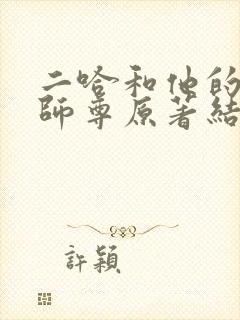 二哈和他的
師尊原著結
許穎